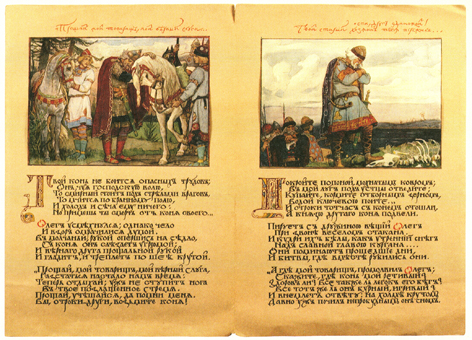 Прощай мой товарищъ, мой вѣрный слуга...
Твой конь не боится опасныхъ трудовъ:
Онъ, чуя господскую волю,
То смирный стоитъ подъ стрѣлами враговъ,
То мчится по бранному полю,
И холодъ и сѣча ему ничего:
Но примешь ты смерть отъ коня своего...
Олегъ усмѣхнулся; однако чело
И взоръ омрачилися думой.
Въ молчаньи, рукой опершись на сѣдло,
Съ коня онъ слѣзаетъ угрюмой;
И вѣрнаго друга прощальной рукой
И гладитъ, и треплетъ по шеѣ крутой.
„Прощай, мой товарищъ, мой вѣрный слуга,
Разстаться настало намъ время:
Теперь отдыхай; ужъ не ступитъ нога
Въ твое позлащенное стремя.
Прощай, утѣшайся, да помни меня.
Вы, отроки, други, возьмите коня!
„Спи, другъ одинокой!
Твой старый хозяинъ тебя пережилъ...
Покройте попоной, мохнатымъ ковромъ;
Въ мой лугъ подъ устцы отведите;
Купайте, кормите отборнымъ зерномъ,
Водой ключевою поите.“
И отроки тотчасъ съ конемъ отошли,
А князю другаго коня подвели.
Пируетъ съ дружиною вѣщій Олегъ
При звонѣ веселомъ стакана.
И кудри ихъ бѣлы, какъ утренній снѣгъ
Надъ славной главою кургана...
Они поминаютъ прошедшіе дни
И битвы, гдѣ вмѣстѣ рубились они.
„А гдѣ мой товарищъ, промолвилъ Олегъ,
Скажите, гдѣ конь мой ретивый?
Здоровъ ли? Все такъ же ль легокъ его бѣгъ?
Все тотъ же ль онъ бурный, игривый?“
И внемлетъ отвѣту: на холмѣ крутомъ
Давно ужъ почилъ непробуднымъ онъ сномъ.